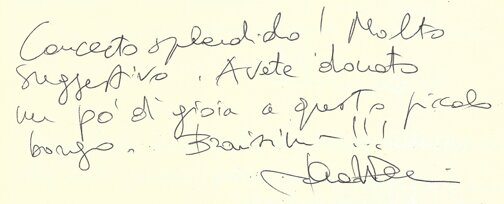 Concerto splendido! Molto
suggestivo. Avete donato
un pó di gioia a questo piccolo
borgo... Bravissimi!!!